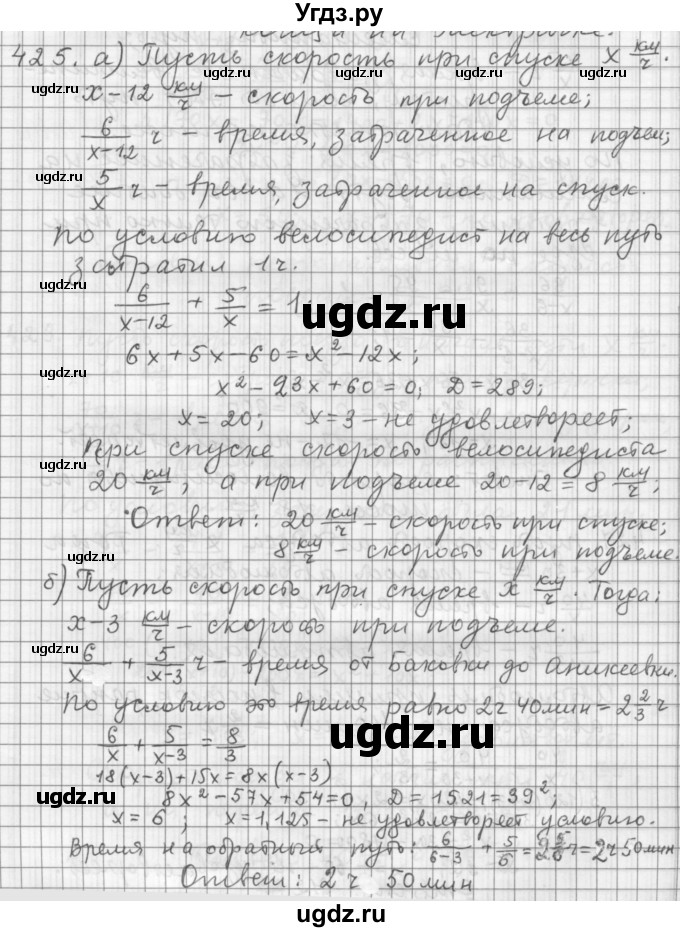 Угдз.ру
425. а) Пусть скорость при спуске x км/ч.
x-12 км/ч - скорость при подъеме;
6/(x-12) ч - время, затраченное на подъем;
5/x ч - время, затраченное на спуск.
По условию велосипедист на весь путь
затратил 1 ч.
6/(x-12) + 5/x = 1;
6x+5x-60=x²-12x;
x²-23x+60=0; D=289;
x=20; x=3-не удовлетворяет;
При спуске скорость велосипедиста
20 км/ч, а при подъеме 20-12=8 км/ч;
Ответ: 20 км/ч - скорость при спуске;
8 км/ч - скорость при подъеме.
б) Пусть скорость при спуске x км/ч. Тогда:
x-3 км/ч - скорость при подъеме.
6/x + 5/(x-3) ч - время от Баковки до Аникеевки.
По условию это время равно 2ч 40мин = 2 2/3 ч
6/x + 5/(x-3) = 8/3
18(x-3)+15x=8x(x-3)
8x²-57x+54=0, D=1521=39²;
x=6; x=1,125- не удовлетворяет условию.
Время на обратный путь: 6/(6-3) + 5/6 = 2 5/6 ч = 2ч 50мин
Ответ: 2 ч 50 мин
ugdz.ru